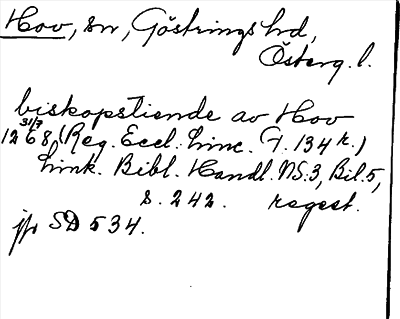 Hov, sn, Göstrings hd,
Österg. l.
biskopstiende av Hov
31/7
1268 (Reg. Eccl. Linc. F. 134 r.)
Link. Bibl. Handl. NS:3, Bil. 5,
s. 242. regest.
jfr SD 534.